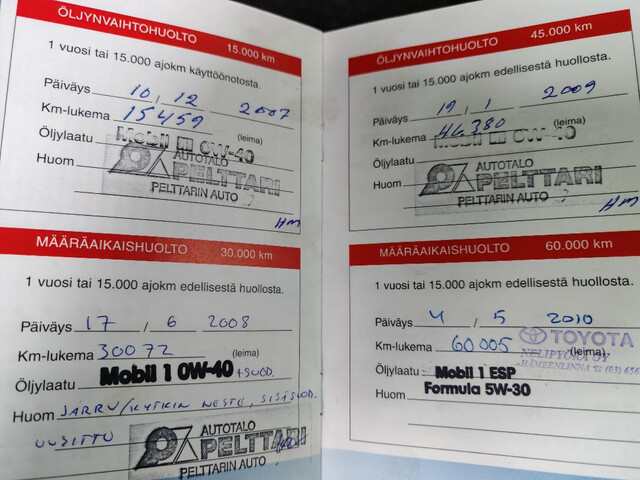 ÖLJYNVAIHTOHUOLTO 15.000 km
1 vuosi tai 15.000 ajokm käyttöönotosta.
Päiväys 10 / 12 2007
Km-lukema 15459
Öljylaatu Mobil 1 0W-40 (leima)
Huom
AUTOTALO
PELTTARI
PELTTARIN AUTO
HM
MÄÄRÄAIKAISHUOLTO 30.000 km
1 vuosi tai 15.000 ajokm edellisestä huollosta.
Päiväys 17 / 6 2008
Km-lukema 30072
(leima)
Öljylaatu Mobil 1 0W-40 +SUOD.
Huom JARRU/KYTKIN NESTE, SISÄSUOD.
UUSITTU
AUTOTALO
PELTTARI
PELTTARIN AUTO
ÖLJYNVAIHTOHUOLTO 45.000 km
1 vuosi tai 15.000 ajokm edellisestä huollosta.
Päiväys 19 / 1 2009
Km-lukema 46380
Öljylaatu Mobil 1 0W-40 (leima)
Huom
AUTOTALO
PELTTARI
PELTTARIN AUTO
HM
MÄÄRÄAIKAISHUOLTO 60.000 km
1 vuosi tai 15.000 ajokm edellisestä huollosta.
Päiväys 4 / 5 2010
TOYOTA
Km-lukema 60005 (leima)
NELIPYÖRÄ OY
HÄMEENLINNA ☎ (03) 656
Öljylaatu Mobil 1 ESP
Formula 5W-30
Huom